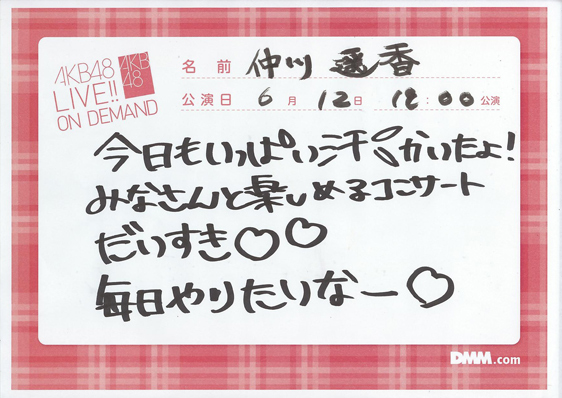 AKB48
LIVE!!
ON DEMAND
AKB
48
名前 仲川遥香
公演日 6月12日 18:00公演
今日もいっぱい汗かいたよ!
みなさんと楽しめるコンサート
だいすき♡♡
毎日やりたいなー♡
DMM.com